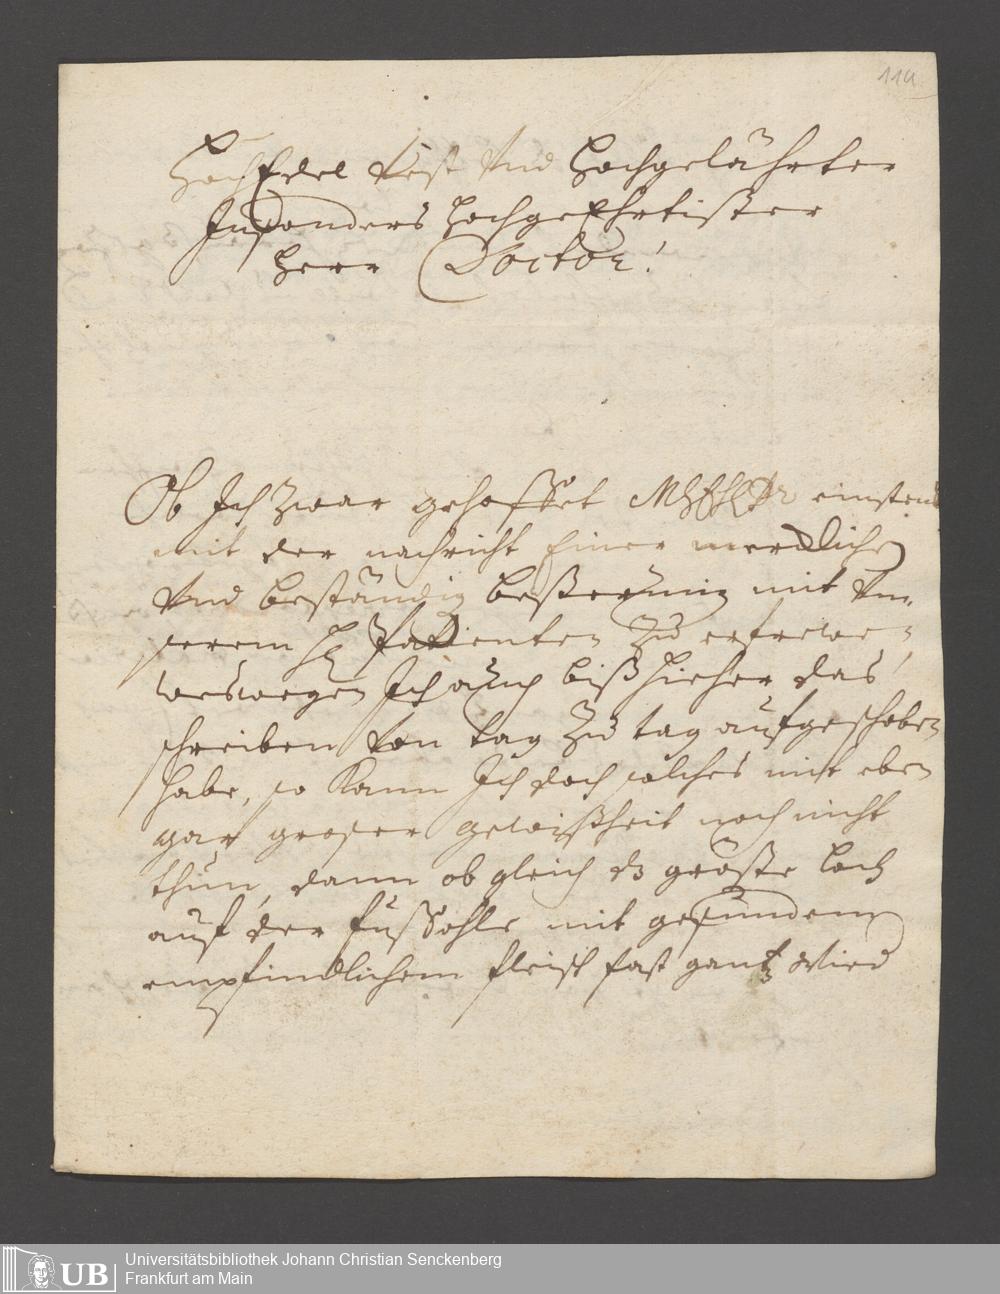 114
HochEdel Vest Vnd Hochgelährter
Insonders Hochgeehrtister
Herr Doctor!
Ob Ich zwar gehoffet einstens
mit der nachricht Einer mercklichen
Vnd beständig beßerung mit Vn-
serem H. Patienten zu erfrewen,
weswegen Ich auch biß hieher das
schreiben von tag zu tag aufgeschoben
habe, so kann Ich doch solches mit eben
gar groser gewißheit noch nicht
thun, dann ob gleich dz gröste Loch
auf der fußsohle mit gesundem
empfindlichem fleisch fast gantz Wied
Universitätsbibliothek Johann Christian Senckenberg
Frankfurt am Main
UB